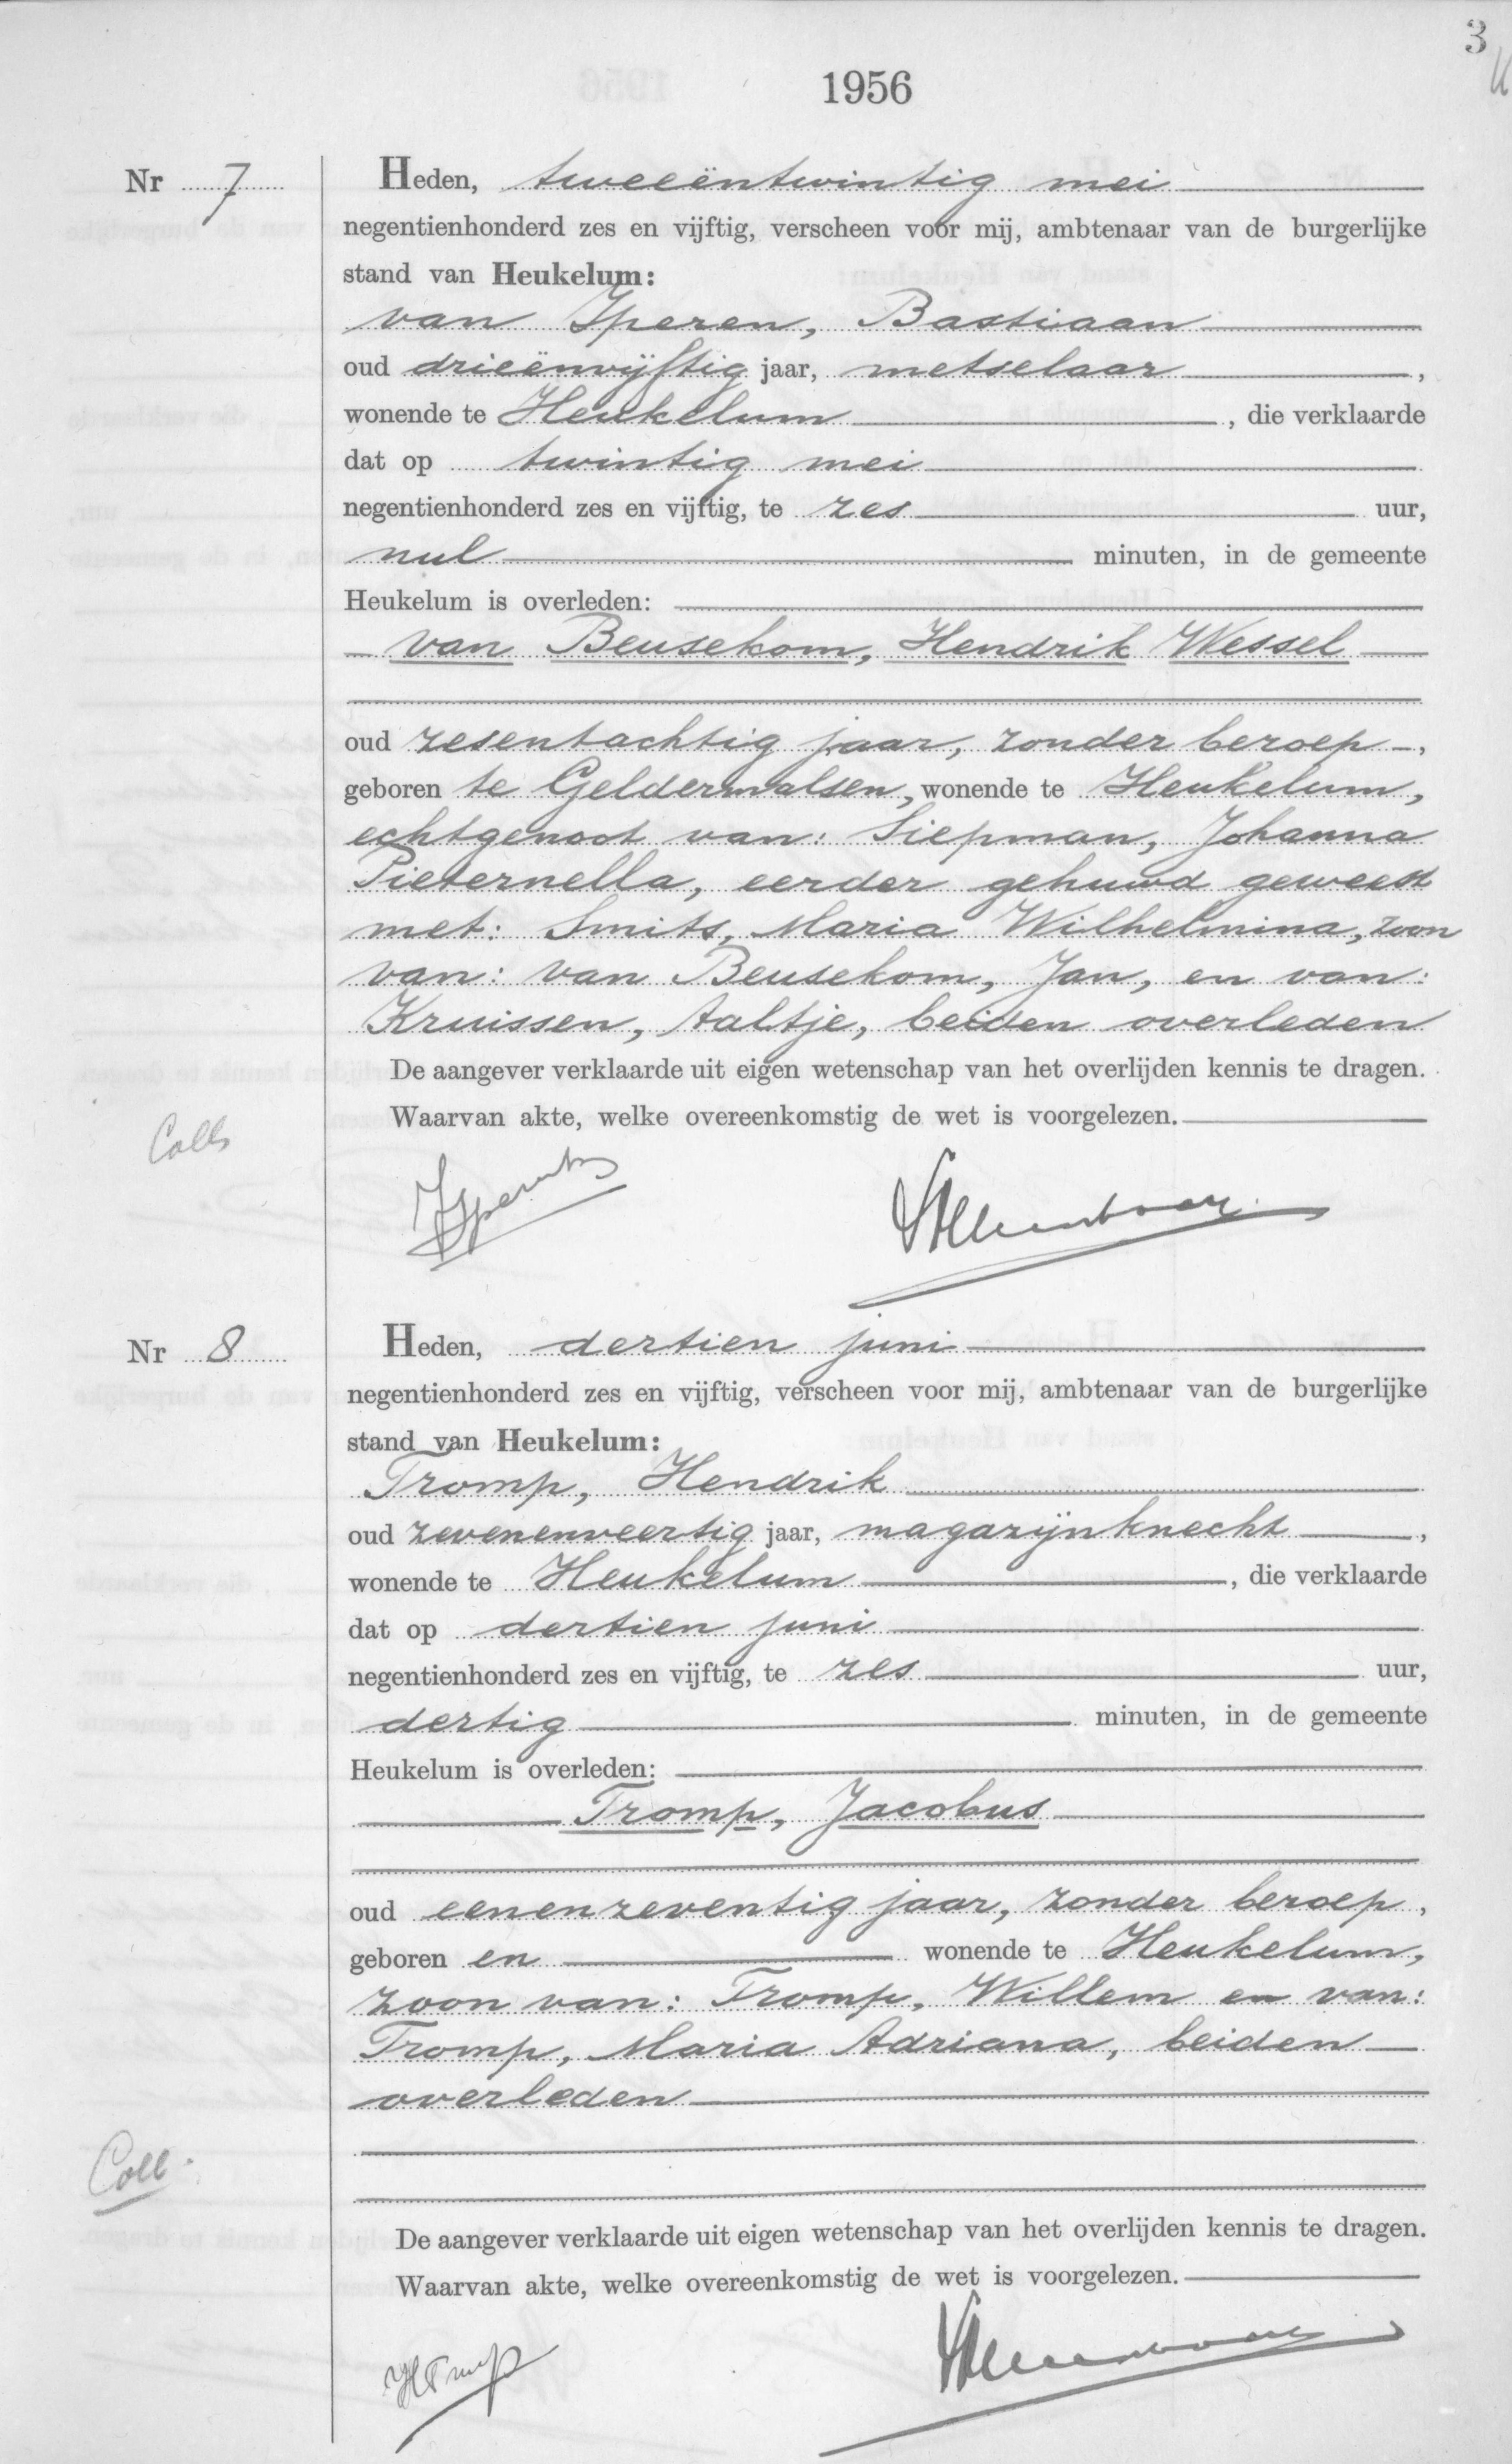 3
1956
Nr 7
Heden, tweeëntwintig mei
negentienhonderd zes en vijftig, verscheen voor mij, ambtenaar van de burgerlijke
stand van Heukelum:
van Iperen, Bastiaan
oud drieënvijftig jaar, metselaar,
wonende te Heukelum, die verklaarde
dat op twintig mei
negentienhonderd zes en vijftig, te zes uur,
nul minuten, in de gemeente
Heukelum is overleden:
van Beusekom, Hendrik Wessel
oud zesentachtig jaar, zonder beroep,
geboren te Geldermalsen, wonende te Heukelum,
echtgenoot van: Siepman, Johanna
Pieternella, eerder gehuwd geweest
met: Smits, Maria Wilhelmina, zoon
van: van Beusekom, Jan, en van:
Kruissen, Aaltje, beiden overleden
De aangever verklaarde uit eigen wetenschap van het overlijden kennis te dragen.
Waarvan akte, welke overeenkomstig de wet is voorgelezen.
Coll
Nr 8
Heden, dertien juni
negentienhonderd zes en vijftig, verscheen voor mij, ambtenaar van de burgerlijke
stand van Heukelum:
Tromp, Hendrik
oud zevenenveertig jaar, magazijnknecht,
wonende te Heukelum, die verklaarde
dat op dertien juni
negentienhonderd zes en vijftig, te zes uur,
dertig minuten, in de gemeente
Heukelum is overleden:
Tromp, Jacobus
oud eenenzeventig jaar, zonder beroep,
geboren en wonende te Heukelum,
zoon van: Tromp, Willem en van:
Tromp, Maria Adriana, beiden
overleden
Coll.
De aangever verklaarde uit eigen wetenschap van het overlijden kennis te dragen.
Waarvan akte, welke overeenkomstig de wet is voorgelezen.
HTromp